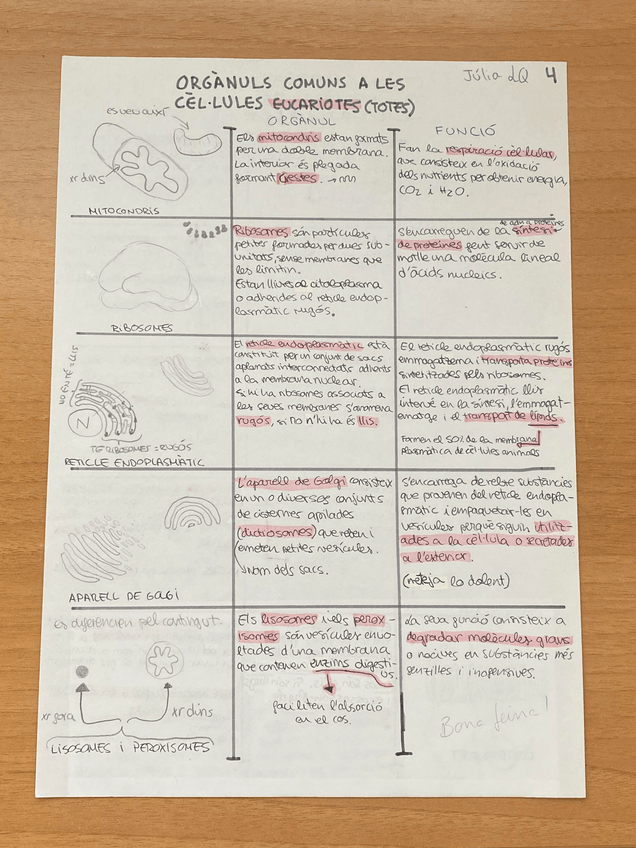 Júlia LQ 4
ORGÀNULS COMUNS A LES
CÈL·LULES EUCARIOTES (TOTES)
ORGÀNUL
FUNCIÓ
es veu així
xr dins
MITOCONDRIS
Els mitocondris estan formats
per una doble membrana.
La interior és plegada
formant Crestes.
Fan la respiració cèl·lular,
que consisteix en l'oxidació
dels nutrients per obtenir energia,
CO2 i H2O.
RIBOSOMES
Ribosomes són partícules
petites formades per dues sub-
unitats, sense membranes que
les limitin.
Estan lliures al citoplasma
o adherides al reticle endop-
lasmàtic rugós.
S'encarreguen de la síntesi
de proteïnes pent servir de
motlle una molècula lineal
d'àcids nucleics.
NO EN TÉ = LLIS
N
TÉ RIBOSOMES = RUGÓS
RETICLE ENDOPLASMÀTIC
El reticle endoplasmàtic està
constituït per un conjunt de sacs
aplanats interconnectats adherits
a la membrana nuclear.
Si hi ha ribosomes associats a
les seves membranes s'anomena
rugós, si no n'hi ha és llis.
El reticle endoplasmàtic rugós
emmagatzema i transporta proteïnes
sintetitzades pels ribosomes.
El reticle endoplasmàtic llis
intervé en la síntesi, l'emmagat-
ematge i el transport de lípids.
Formen el 50% de la membrana
plasmàtica de cèl·lules animals
APARELL DE GOLGI
L'aparell de Golgi consisteix
en un o diversos conjunts
de cisternes apilades
(dictiosomes) que reben i
emeten petites vesícules.
nom dels sacs.
S'encarrega de rebre substàncies
que provenen del reticle endopla-
smàtic i empaquetar-les en
vesícules perquè siguin utilitz-
ades a la cèl·lula o secretades
a l'exterior.
(neteja lo dolent)
es diferencien pel contingut.
xr fora
xr dins
LISOSOMES i PEROXISOMES
Els lisosomes i els perox-
isomes són vesícules envo-
ltades d'una membrana
que contenen enzims digesti-
us.
faciliten l'absorció
en el cos.
La seva funció consisteix a
degradar molècules grans
o nocives en substàncies més
senzilles i inofensives.
Bona feina!